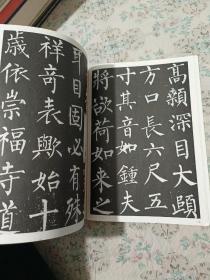 高顙深目大頤
方口長六尺五
寸其音如鍾夫
將欲荷如来之
耳目固必有殊
祥奇表歟始十
歲依崇福寺道